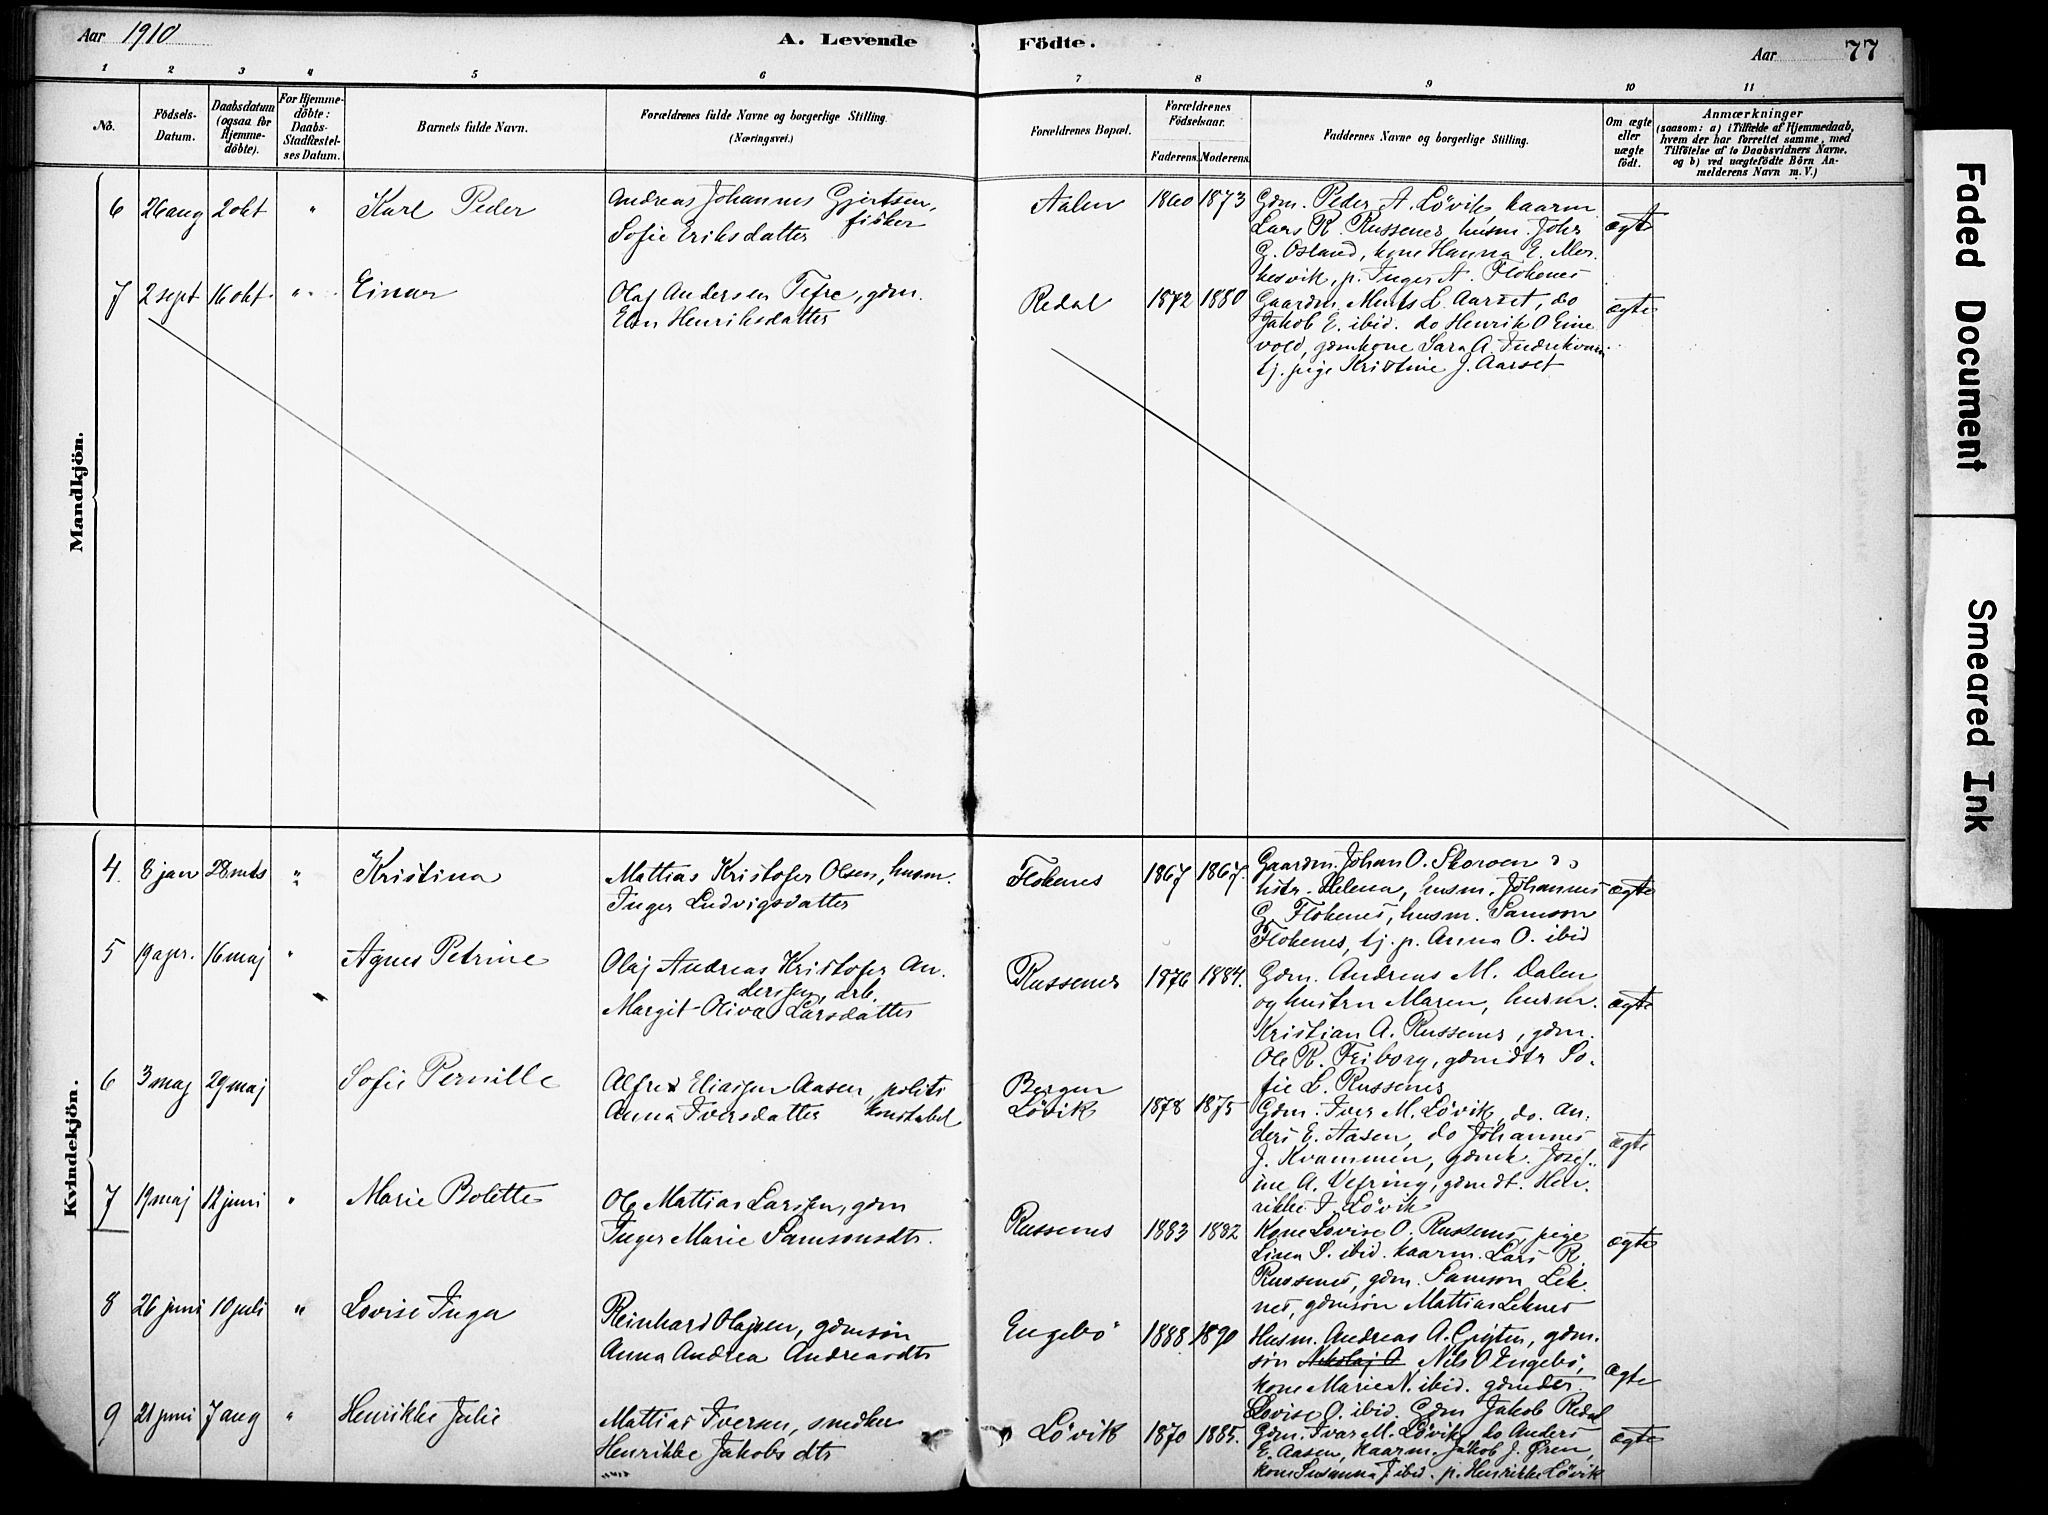 Aar 1910
A. Levende
Födte.
Aar
77
1 2 3 4 5 6 7 8 9 10 11
No.
Födsels-
Datum.
Daabsdatum
(ogsaa for
Hjemme-
döbte).
For Hjemme-
döbte:
Daabs-
Stadfæstel-
ses Datum.
Barnets fulde Navn.
Forældrenes fulde Navne og borgerlige Stilling.
(Næringsvei.)
Forældrenes Bopæl.
Forældrenes
Födselsaar.
Faderens. Moderens.
Faddernes Navne og borgerlige Stilling.
Om ægte
eller
uægte
födt.
Anmærkninger
(saasom: a) i Tilfælde af Hjemmedaab,
hvem der har forrettet samme, med
Tilföielse af to Daabsvidners Navne,
og b) ved uægtefödte Börn An-
melderens Navn m. V.)
Mandkjön.
6 26 aug 2 okt " Karl Peder
Andreas Johannes Gjertsen,
fisker
Sofie Eriksdatter
Aalen 1860 1873
Gdm. Peder A. Lövik, kaarm.
Lars R. Russenes, husm. Johs
G. Osland, kone Hanna E. Mor-
kesvik, p. Inger A. Flokenes
ægte
7 2 sept 16 okt. " Einar
Olaf Andersen Tefre, gdm.
Elen Henriksdatter
Redal 1872 1880
Gaardm. Ments L. Aarset, do
Jakob E. ibid. do Henrik O Eine
vold, gdmkone Sara A. Indrekvam
tj. pige Kristine J. Aarset
ægte
Kvindekjön.
4. 8 jan 28 mts " Kristina
Mattias Kristofer Olsen, husm.
Inger Ludvigsdatter
Flokenes 1867 1867.
Gaardm. Johan O. Skorven do
hstr. Helena, husm. Johannes
G. Flokenes, husm. Samson
Flokenes, tj. p. Anna O. ibid
ægte
5 19 apr. 16 maj " Agnes Petrine
Olaj Andreas Kristofer An.
dersen, arb.
Margit Oliva Larsdatter
Russenes 1876 1884.
Gdm. Andreas M. Dalen
og hustru Maren, husm.
Kristian A. Russenes, gdm.
Ole R. Feiborg, gdmdtr So-
fie L. Russenes
ægte
6 3 maj 29 maj Sofie Pernille
Alfred Eliassen Aasen, politi
konstabel
Anna Iversdatter
Bergen
Lövik 1878 1875
Gdm. Iver M. Lövik, do. An.
ders E. Aasen, do Johannes
J. Kvammen, gdmk. Josef-
ine A. Vefring, gdmdt. Hen.
rikke I. Lövik
ægte
7 19 maj 12 juni " Marie Bolette
Ole Mattias Larsen, gdm
Inger Marie Samsonsdtr.
Russenes 1883 1882
Kone Lovise O. Russenes, pige
Lina S. ibid. kaarm. Lars R.
Russenes, gdm. Samson Lek
nes, gdmsön Mattias Leknes
ægte
8 26 juni 10 juli " Lovise Inga
Reinhard Olajsen, gdmsön
Anna Andrea Andreasdtr
Engebö 1888 1890
Husm. Andreas A. Gryten, gdm.
sön Nikolaj O Nils O Engebö,
kone Marie N. ibid. gdmdtr.
Lovise O. ibid. Gdm Jakob Redal
ægte
9 21 juni 7 aug " Henrikke Julie
Mattias Iversen, snedker
Henrikke Jakobsdtr
Lövik 1870 1885.
Gdm. Ivar M. Lövik, do Anders
E. Aasen, kaarm. Jakob J. Øren,
kone Susanna J ibid. p. Henrikke Lövik
ægte
Faded Document
Smeared Ink